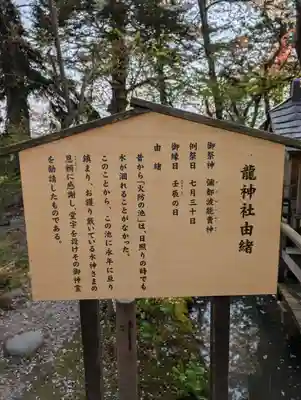 龍神社由緒
御祭神 彌都波能賣神
例祭日 七月三十日
御縁日 壬辰の日
由緒
昔から「火防の池」は、日照りの時でも
水が涸れることがなかった。
このことから、この池に永年に亘り
鎮まり、お護り戴いている水神さまの
恩頼に感謝し、堂宇を設けその御神霊
を勧請したものである。